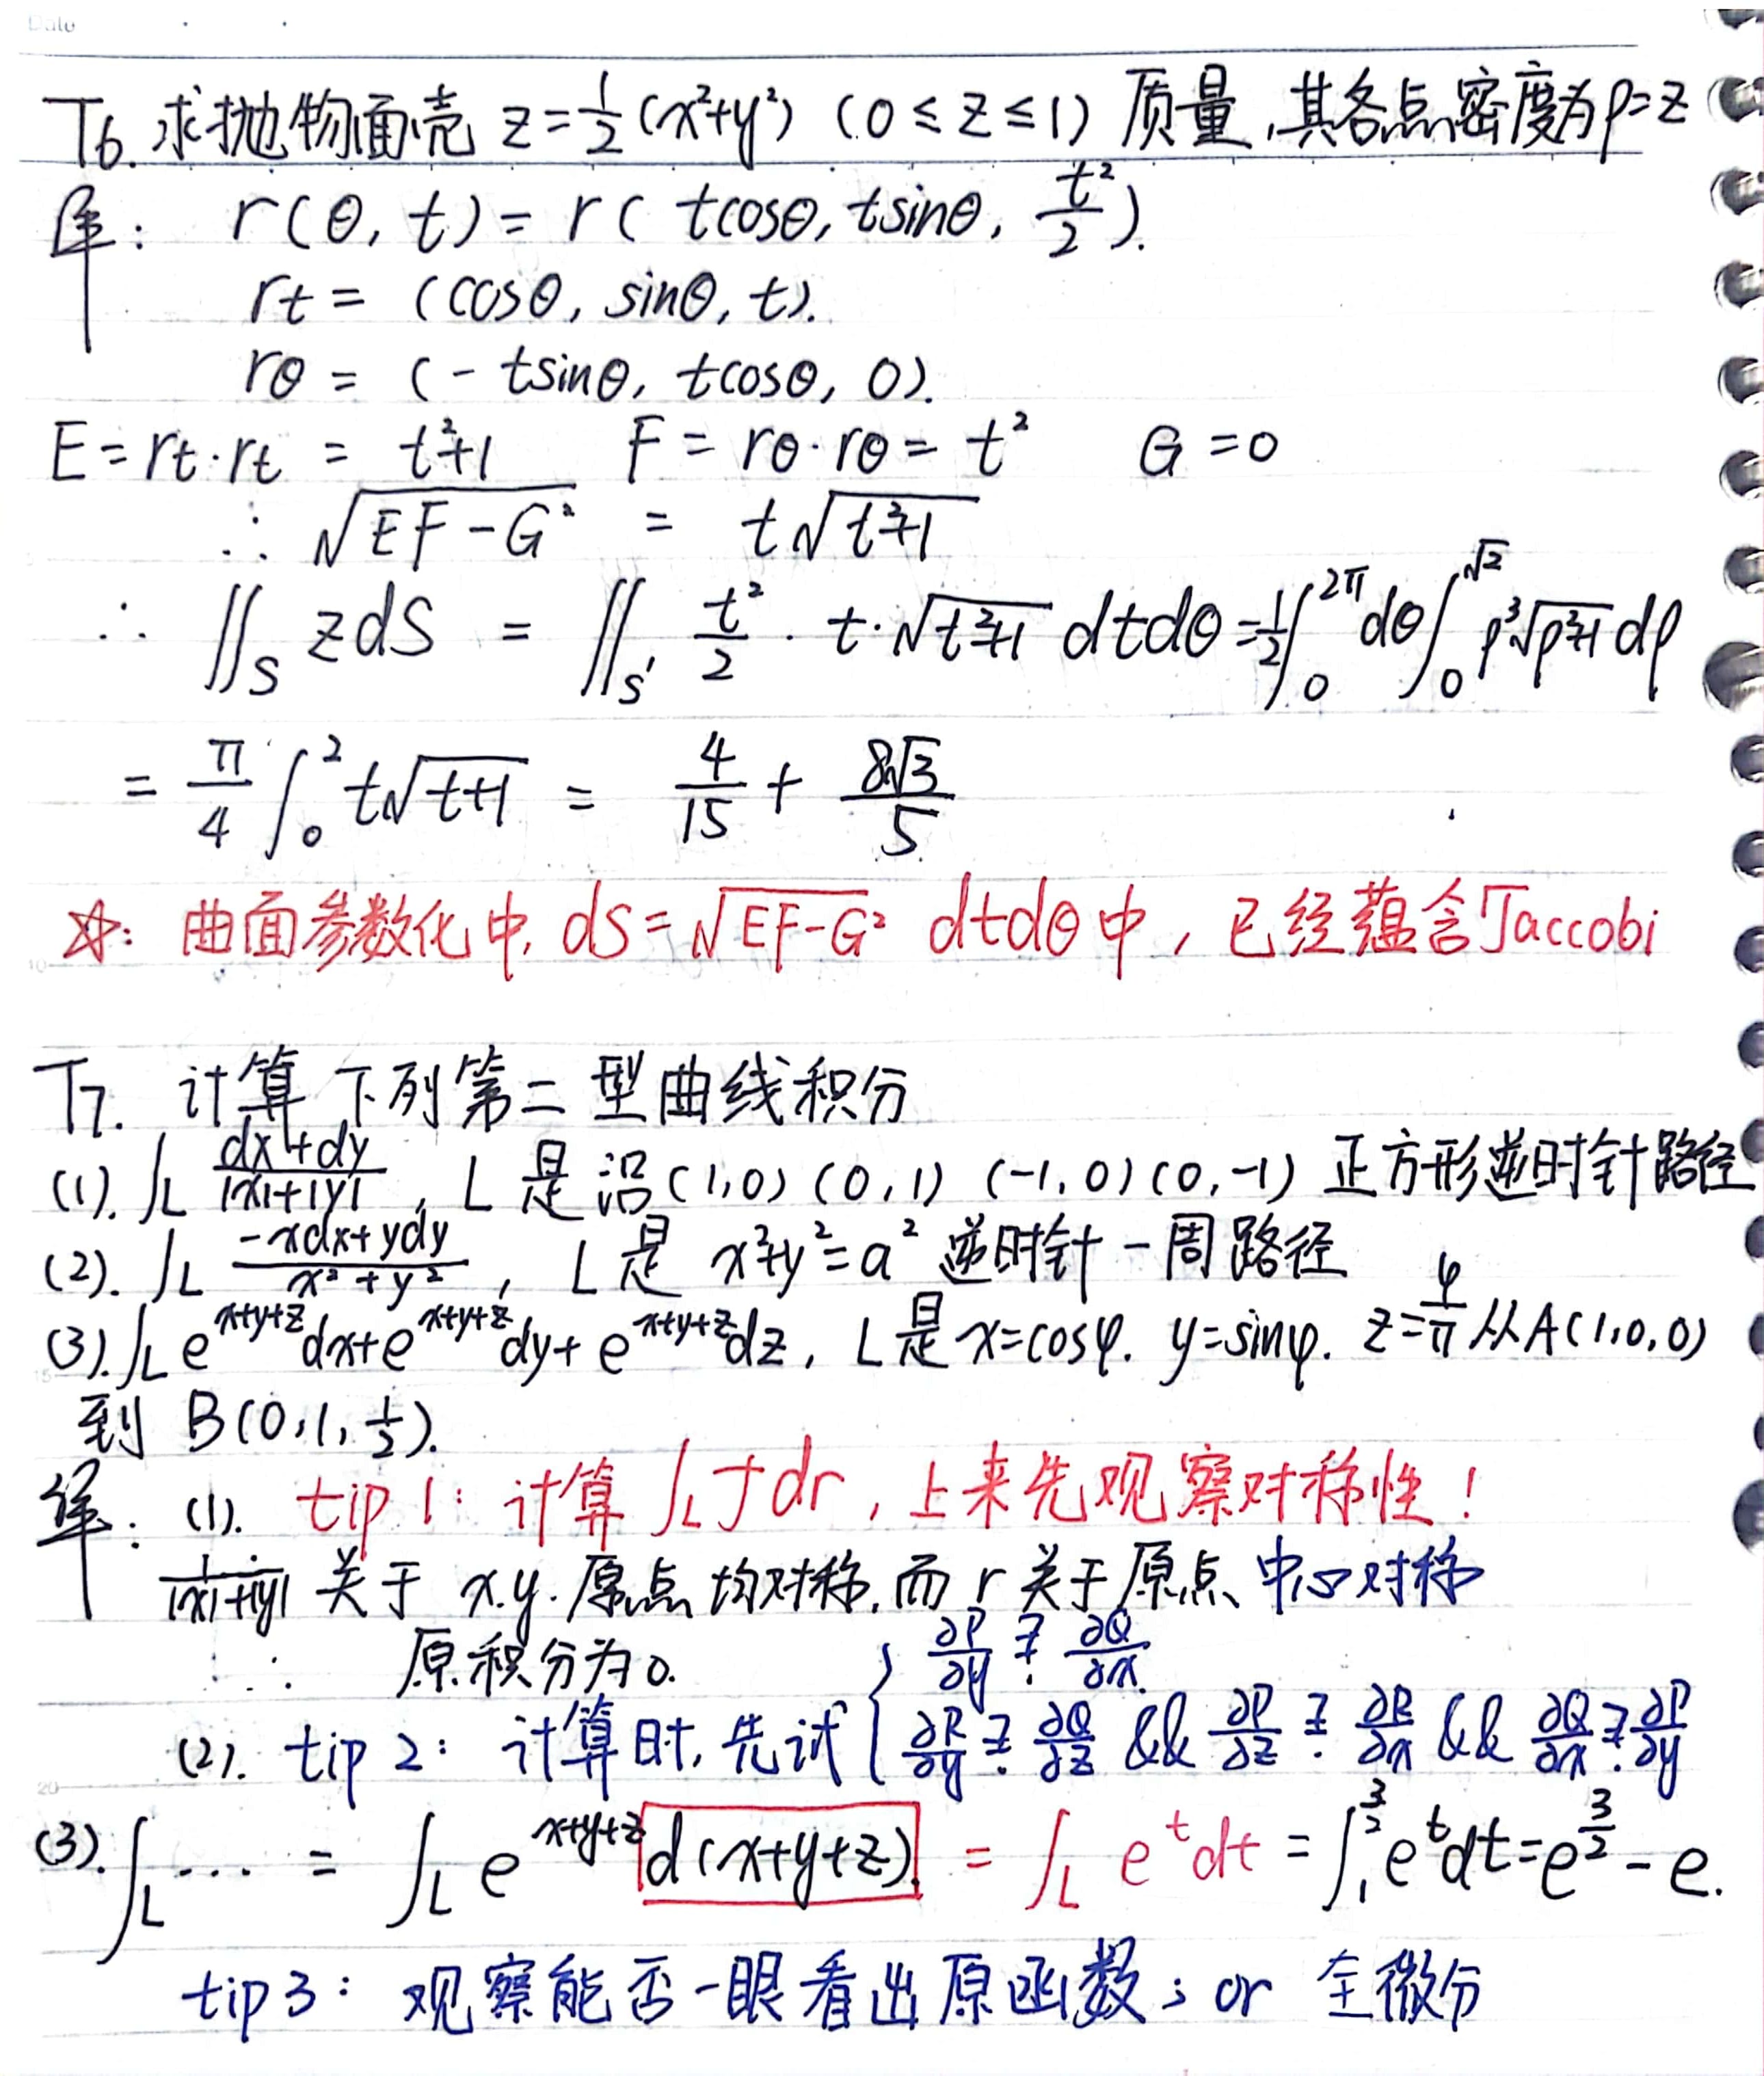 Date
T6. 求抛物面壳 z=½(x²+y²) (0≤z≤1) 质量,其各点密度为ρ=z
解: r(θ, t) = r( tcosθ, tsinθ, t²/2 ).
rt = (cosθ, sinθ, t).
rθ = (- tsinθ, tcosθ, 0).
E = rt·rt = t²+1 F = rθ·rθ = t² G = 0
∴ √(EF-G²) = t√(t²+1)
∴ ∬_S zdS = ∬_S' t²/2 · t·√(t²+1) dtdθ = ½∫_0^{2π} dθ ∫_0^{√2} ρ³√(ρ²+1) dρ
= π/4 ∫_0^2 t√(t+1) = 4/15 + 8√3/5
☆: 曲面参数化中, dS=√(EF-G²) dtdθ中, 已经蕴含Jaccobi
T7. 计算下列第二型曲线积分
(1). ∫_L (dx+dy)/(|x|+|y|), L 是沿(1,0) (0,1) (-1,0) (0,-1) 正方形逆时针路径
(2). ∫_L (-xdx+ydy)/(x²+y²), L 是 x²+y²=a² 逆时针一周路径
(3). ∫_L e^{x+y+z}dx+e^{x+y+z}dy+e^{x+y+z}dz, L是x=cosφ. y=sinφ. z=φ/π 从A(1,0,0)
到 B(0,1,½).
解: (1). tip 1: 计算 ∫_L f dr, 上来先观察对称性!
1/(|x|+|y|) 关于 x.y.原点均对称,而 r 关于原点 中心对称
∴ 原积分为0. { ∂P/∂y ≟ ∂Q/∂x
(2). tip 2: 计算时,先试 { ∂R/∂y ≟ ∂Q/∂z && ∂P/∂z ≟ ∂R/∂x && ∂Q/∂x ≟ ∂P/∂y
(3). ∫_L ... = ∫_L e^{x+y+z} d(x+y+z). = ∫_L e^t dt = ∫_1^{3/2} e^t dt = e^{3/2} - e.
tip 3: 观察能否一眼看出原函数; or 全微分